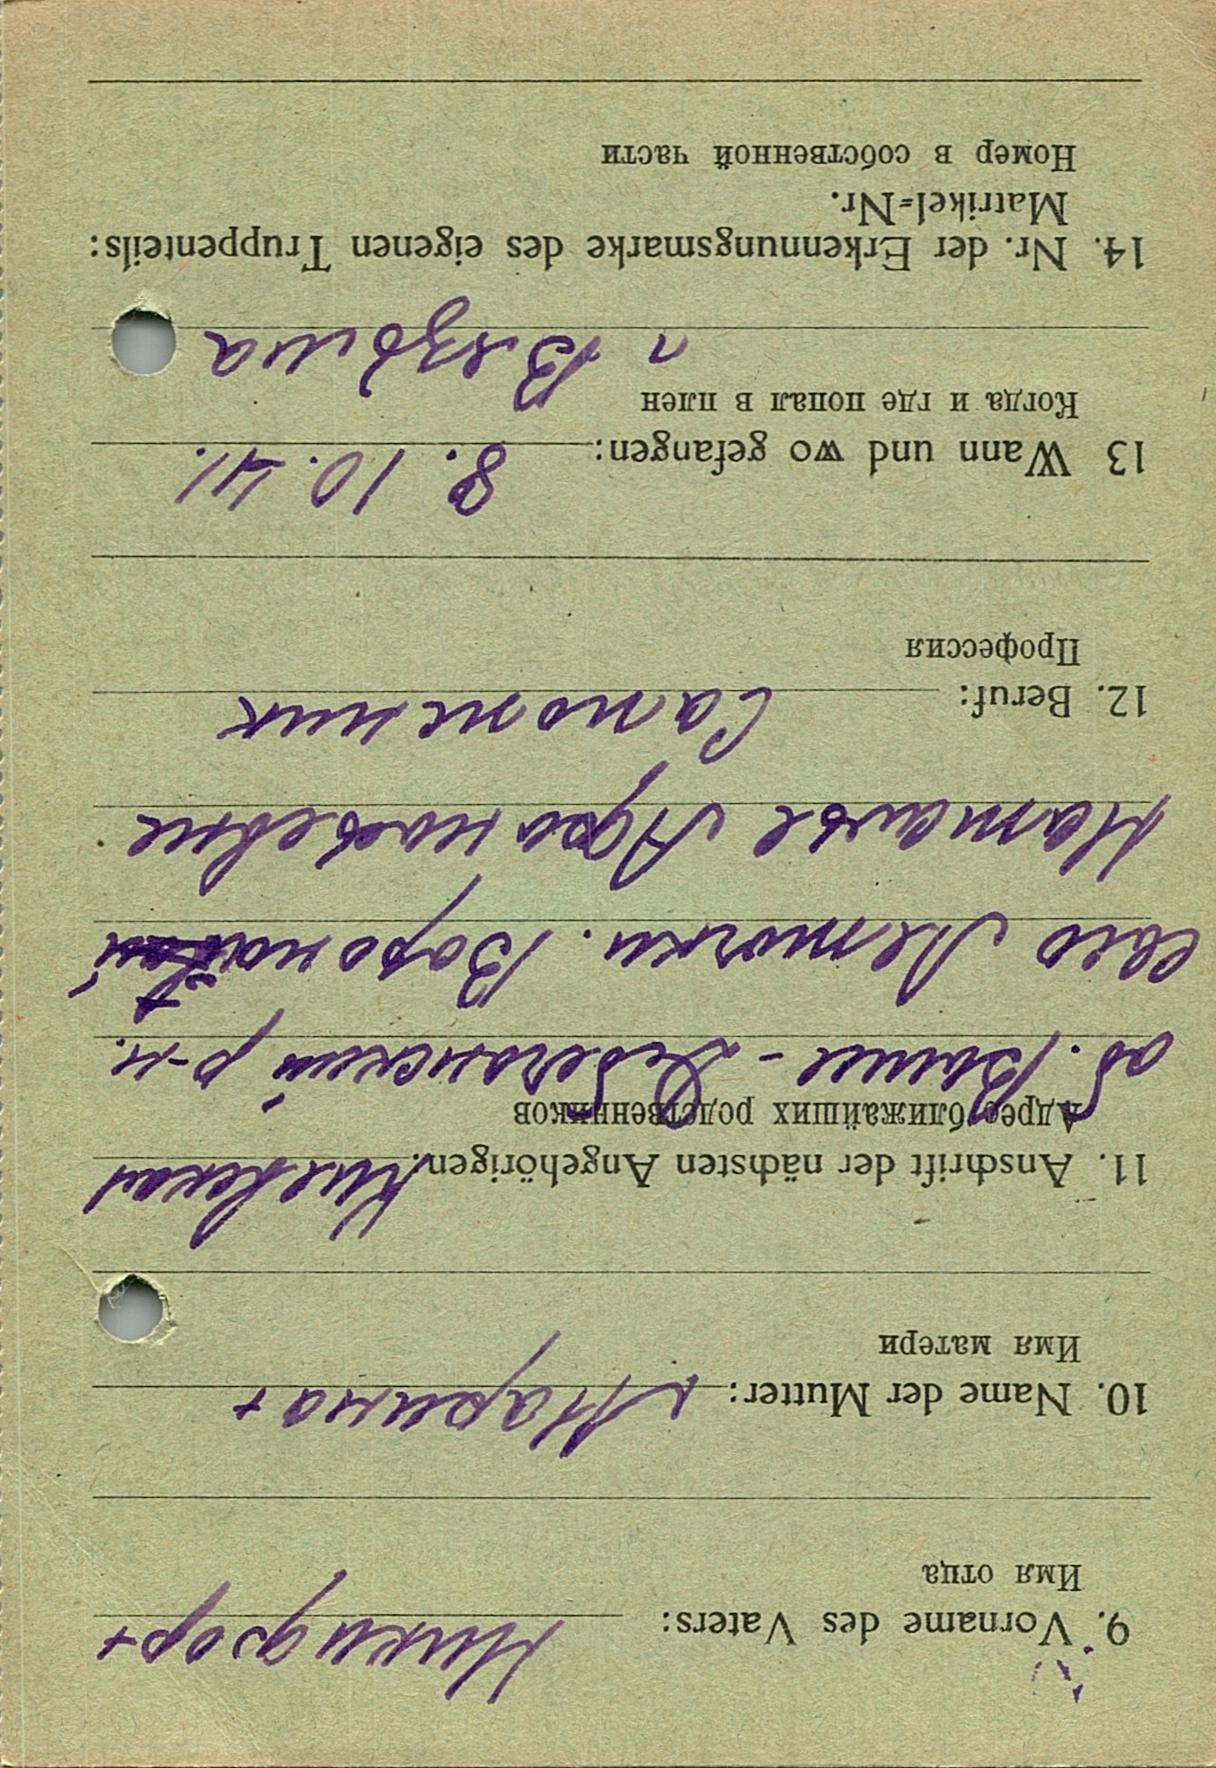 9. Vorname des Vaters: Никифор +
Имя отца
10. Name der Mutter: Марина +
Имя матери
11. Anschrift der nächsten Angehörigen: Киевская
Адрес ближайших родственников
об. Выше-Дубечанский р-н.
село Леточки.
Наталье
12. Beruf: Сапожник
Профессия
13 Wann und wo gefangen: 8. 10. 41.
Когда и где попал в плен
Вязьма
14. Nr. der Erkennungsmarke des eigenen Truppenteils:
Matrikel=Nr.
Номер в собственной части